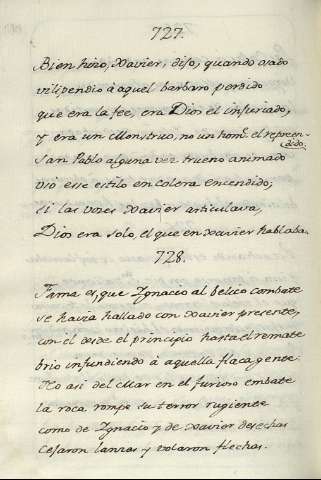 727.
Bien hizo, Xavier, dijo, quando osado
vilipendio à aquel barbaro perdido
que era la fee, era Dios el injuriado,
y era un Monstruo, no un hom.e el repreen-
dido.
San Pablo alguna vez trueno animado
usó esse estilo en colera encendido;
si las vozes Xavier articulava,
Dios era solo, el que en Xavier hablaba.
728.
Fama es, que Ignacio al belico combate
se havia hallado con Xavier presente,
con él desde el principio hasta el remate
brio infundiendo à aquella flaca gente.
No asi del Mar en el furioso embate
la roca rompe su terror rugiente
como de Ignacio y de Xavier desechas
Cesaron lanzas y volaron flechas.